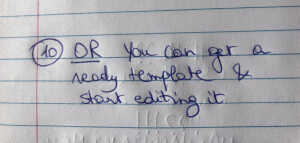 10 OR You can get a
ready template &
start editing it